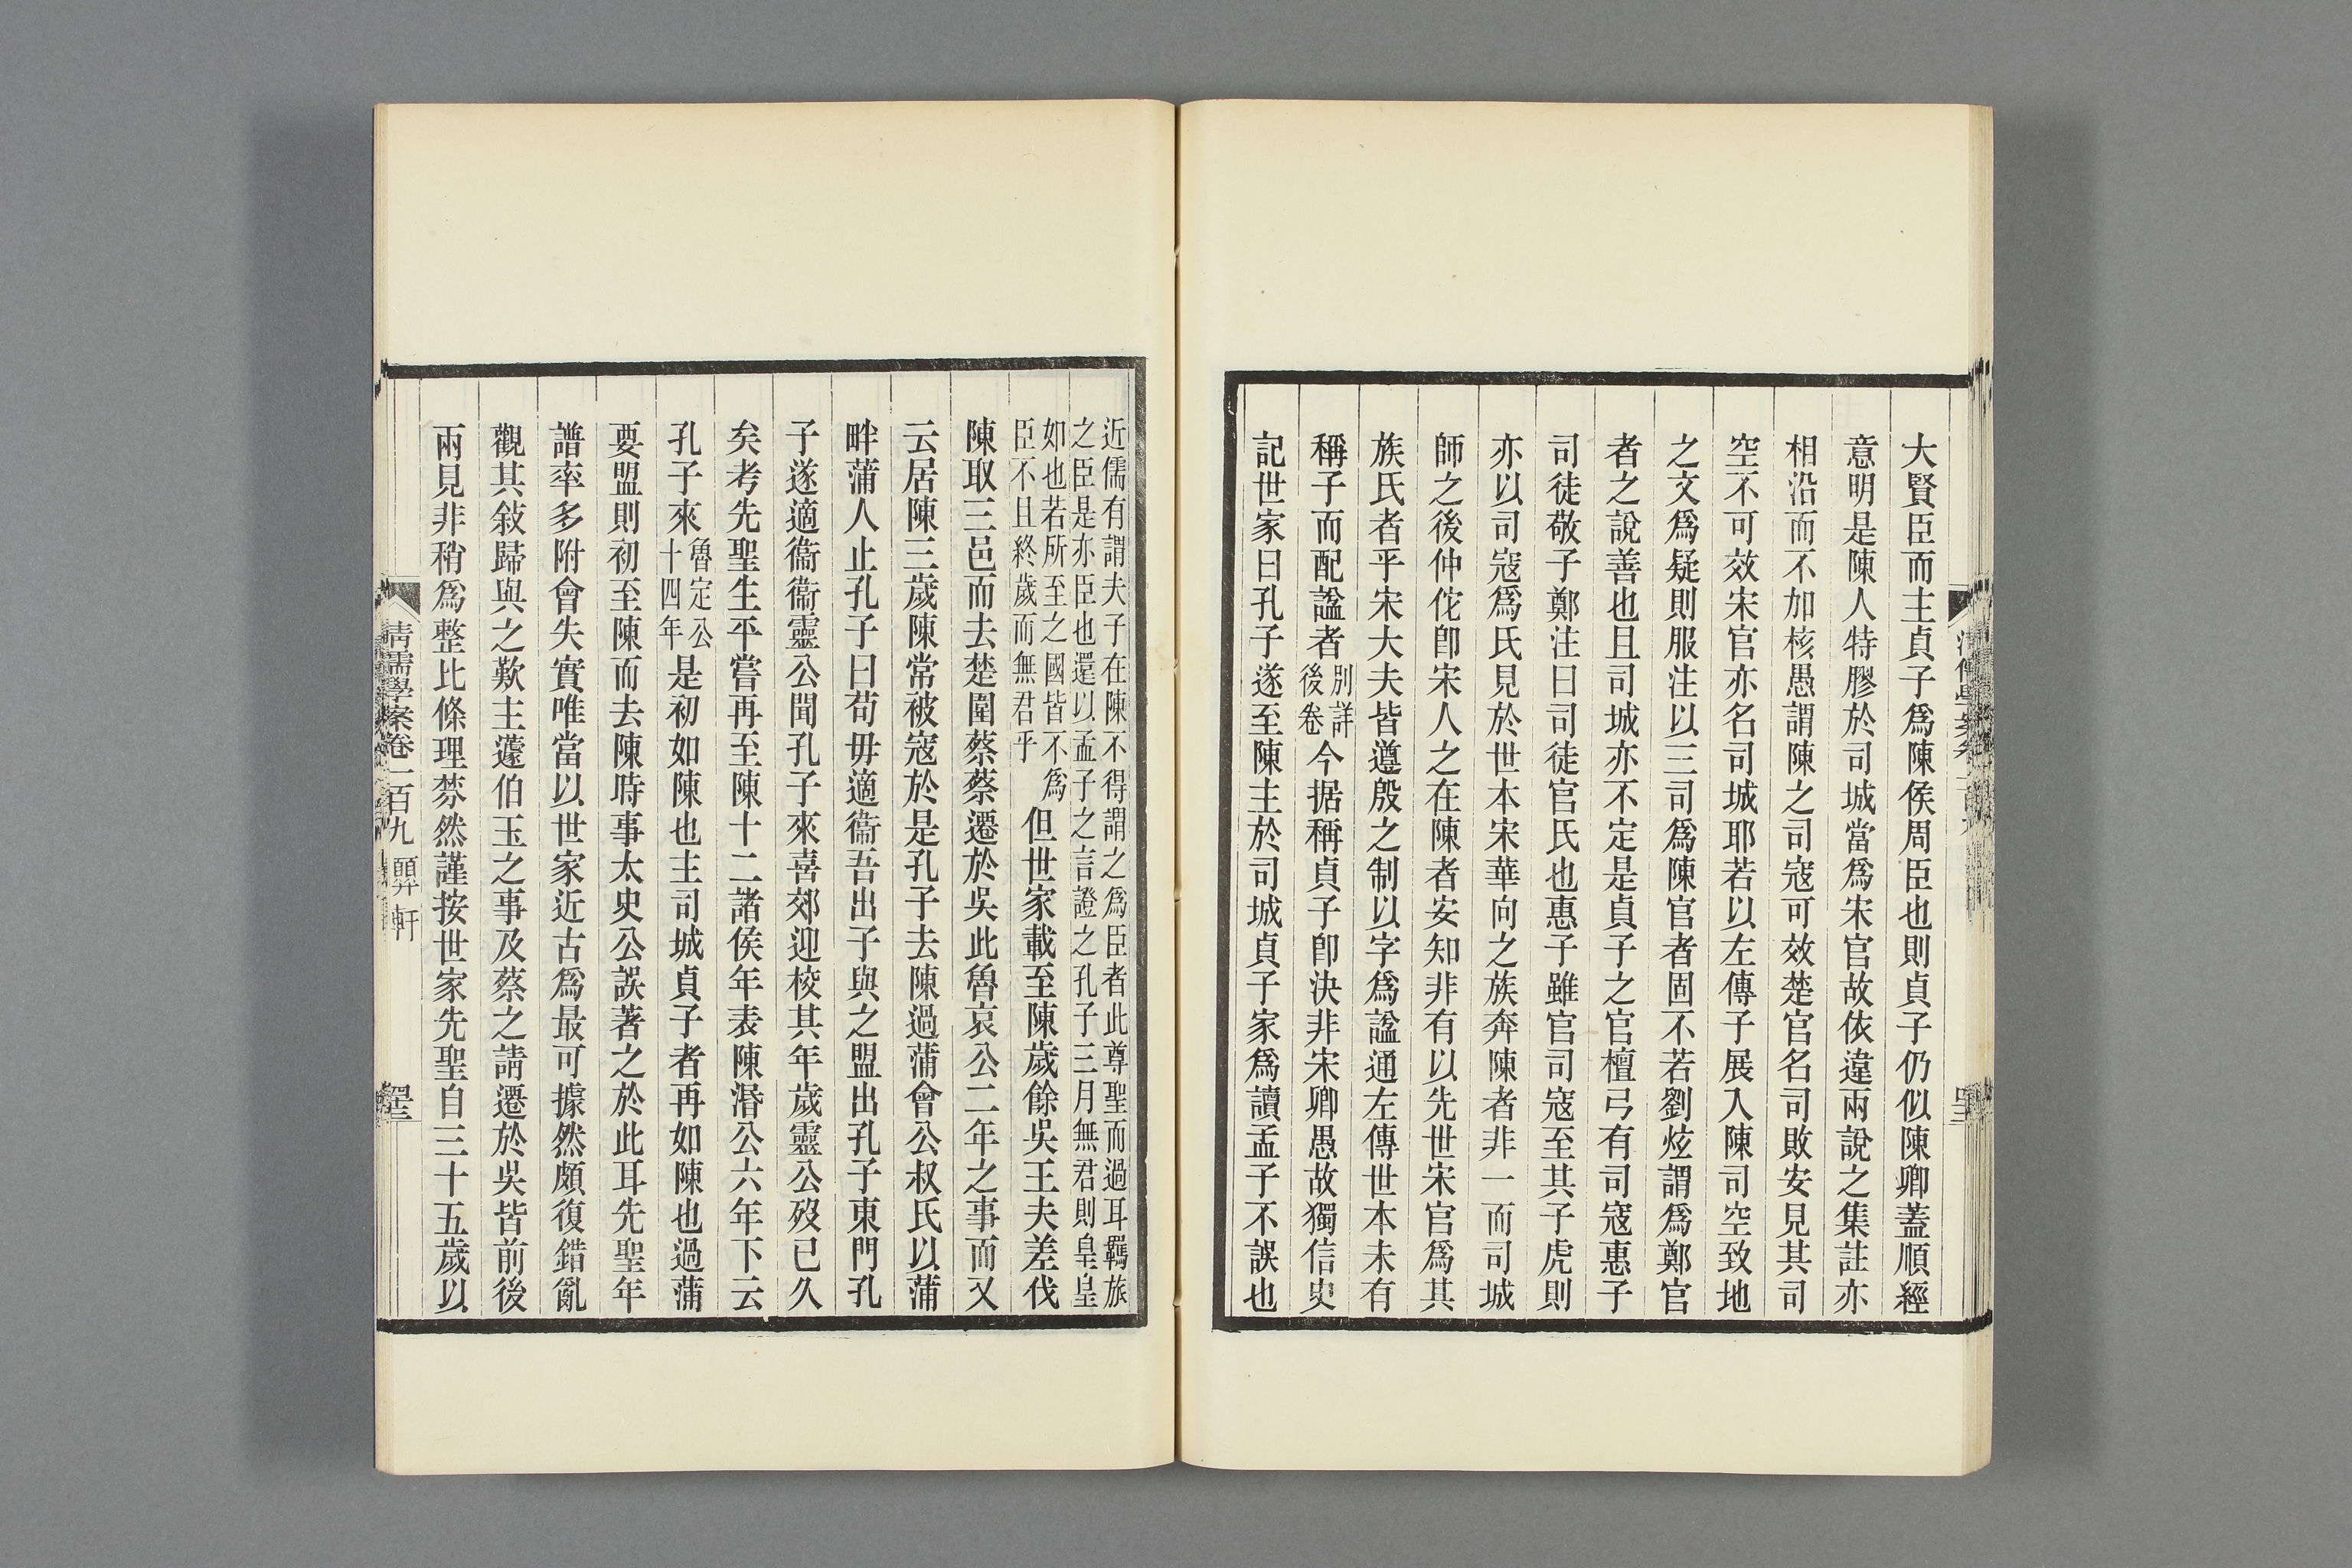 大賢臣而主貞子爲陳侯周臣也則貞子仍似陳卿蓋順經
意明是陳人特膠於司城當爲宋官故依違兩說之集註亦
相沿而不加核愚謂陳之司寇可效楚官名司敗安見其司
空不可效宋官亦名司城耶若以左傳子展入陳司空致地
之文爲疑則服注以三司爲陳官者固不若劉炫謂爲鄭官
者之說善也且司城亦不定是貞子之官檀弓有司寇惠子
司徒敬子鄭注曰司徒官氏也惠子雖官司寇至其子虎則
亦以司寇爲氏見於世本宋華向之族奔陳者非一而司城
師之後仲佗卽宋人之在陳者安知非有以先世宋官爲其
族氏者乎宋大夫皆遵殷之制以字爲諡通左傳世本未有
稱子而配諡者別詳後卷今据稱貞子卽決非宋卿愚故獨信史
記世家曰孔子遂至陳主於司城貞子家爲讀孟子不誤也
近儒有謂夫子在陳不得謂之爲臣者此尊聖而過耳羈旅
之臣是亦臣也還以孟子之言證之孔子三月無君則皇皇
如也若所至之國皆不爲
臣不且終歲而無君乎
但世家載至陳歲餘吳王夫差伐
陳取三邑而去楚圍蔡蔡遷於吳此魯哀公二年之事而又
云居陳三歲陳常被寇於是孔子去陳過蒲會公叔氏以蒲
畔蒲人止孔子曰苟毋適衞吾出子與之盟出孔子東門孔
子遂適衞衞靈公聞孔子來喜郊迎校其年歲靈公歿已久
矣考先聖生平嘗再至陳十二諸侯年表陳湣公六年下云
孔子來魯定公十四年是初如陳也主司城貞子者再如陳也過蒲
要盟則初至陳而去陳時事太史公誤著之於此耳先聖年
譜率多附會失實唯當以世家近古爲最可據然頗復錯亂
觀其敍歸與之歎主蘧伯玉之事及蔡之請遷於吳皆前後
兩見非稍爲整比條理棼然謹按世家先聖自三十五歲以
清儒學案卷一百九 顨軒